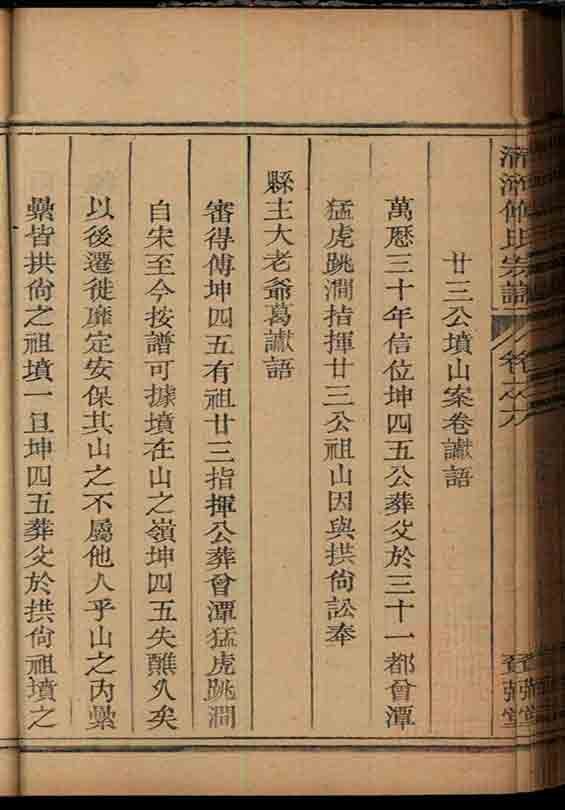 廿三公墳山案卷讞語
萬歷三十年信位坤四五公葬父於三十一都曾潭
猛虎跳澗指揮廿三公祖山因與拱尙訟奉
縣主大老爺葛讞語
審得傅坤四五有祖廿三指揮公葬曾潭猛虎跳澗
自宋至今按譜可據墳在山之嶺坤四五失醮久矣
以後遷徙靡定安保其山之不屬他人乎山之內纍
纍皆拱尙之祖墳一旦坤四五葬父於拱尙祖墳之
氏宗譜
卷之六
堂